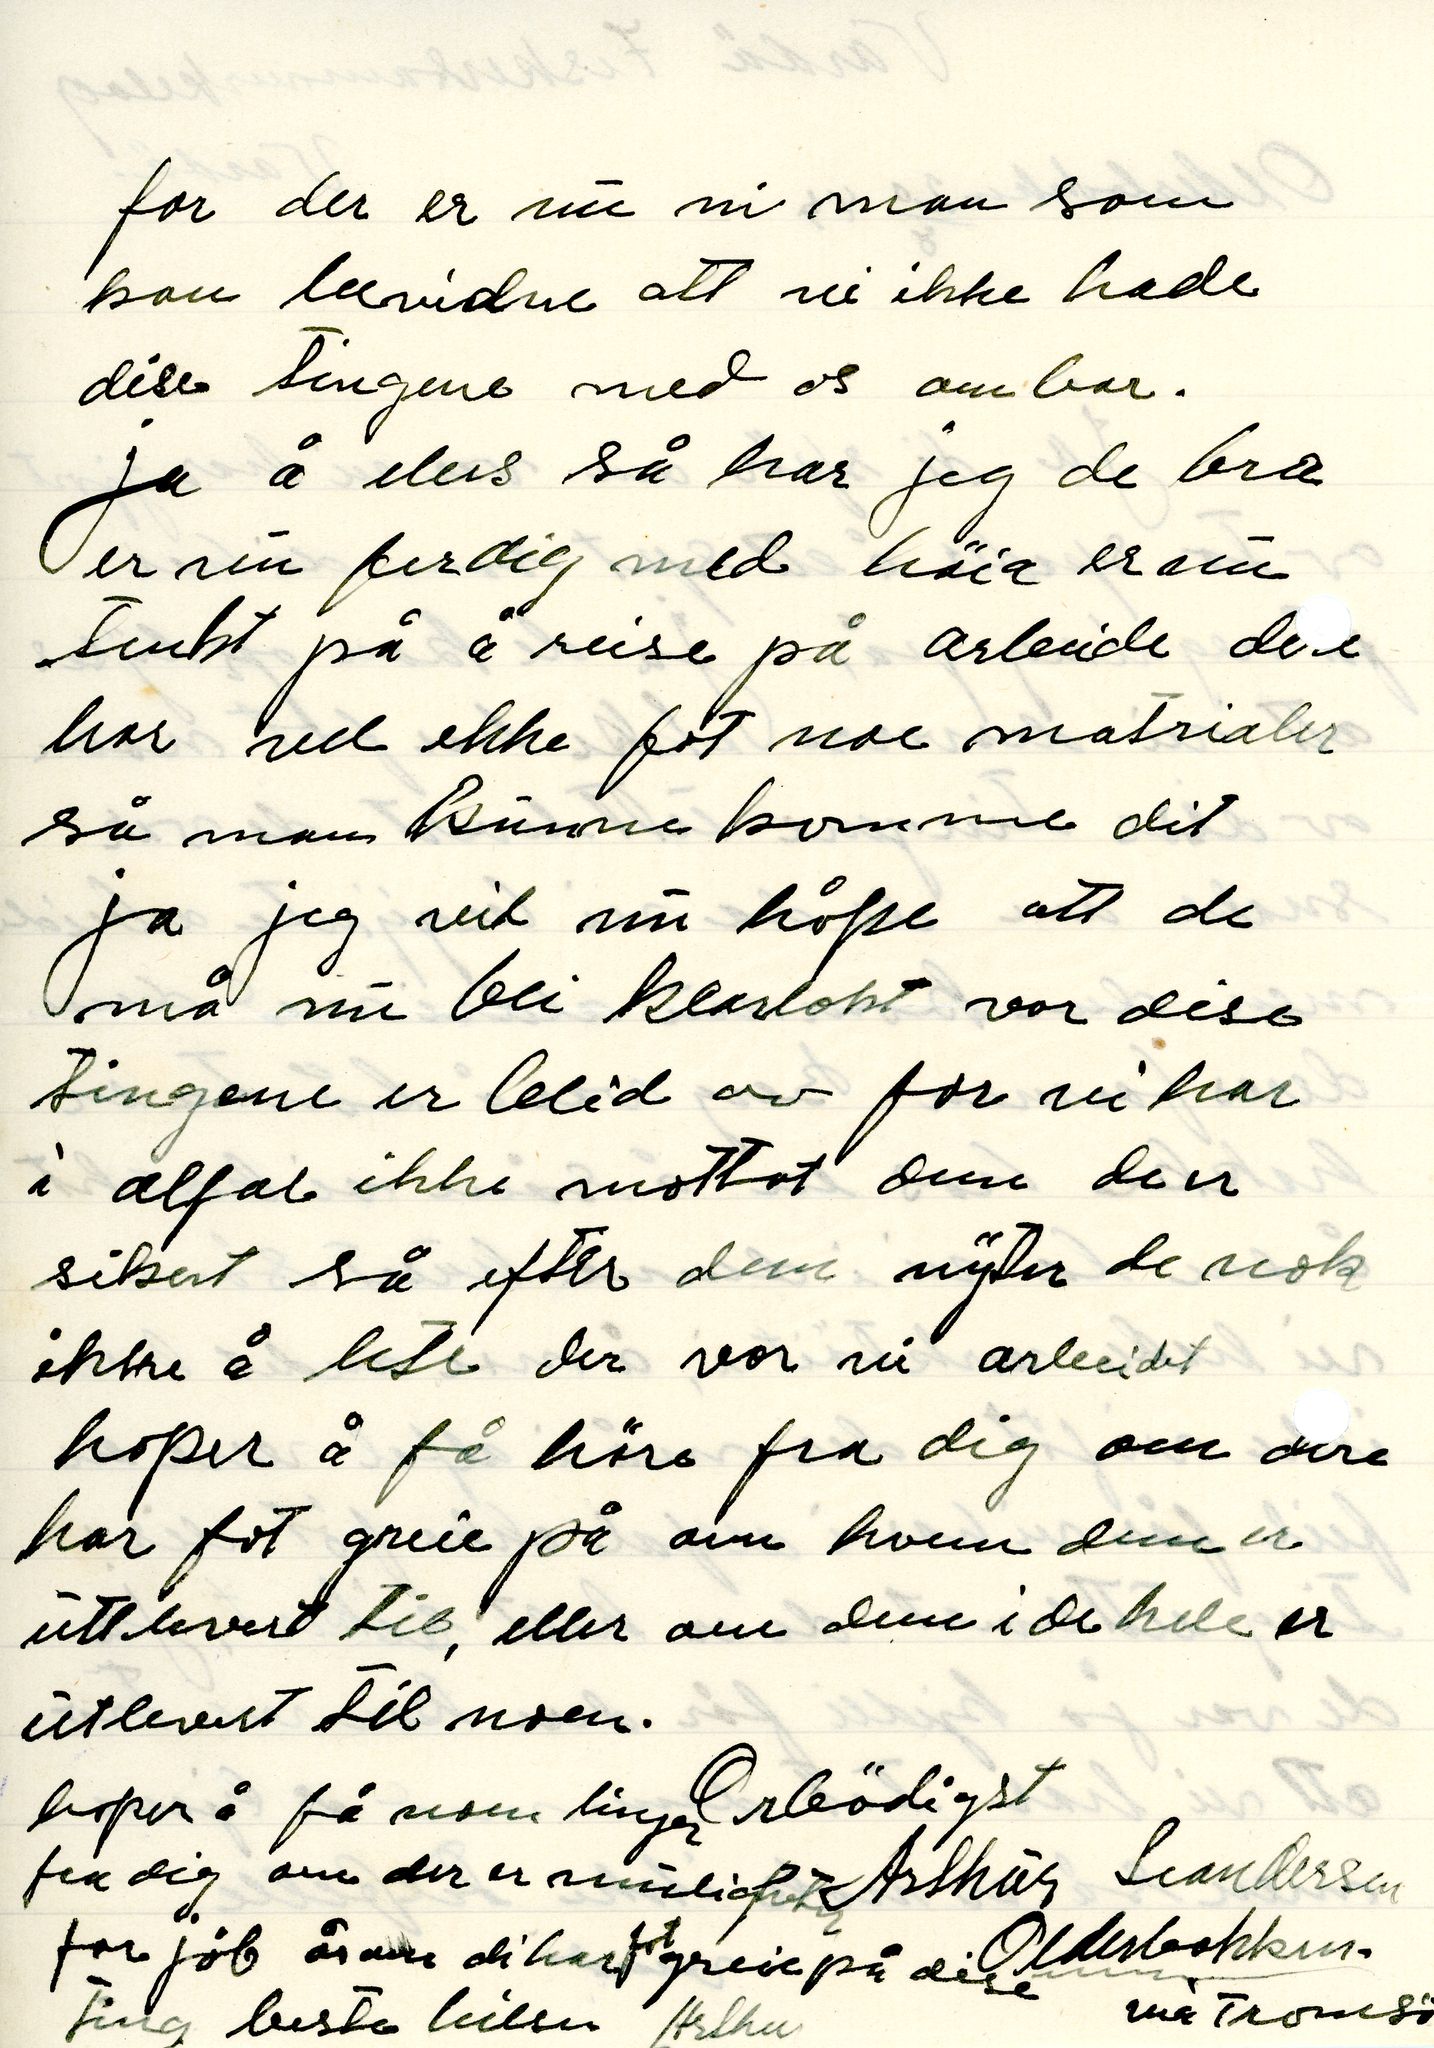 for der er nu ni man som
kan bevidne att vi ikke hade
dise tingene med os ombor.
ja å elers så har jeg de bra
er nu ferdig med höia er nu
tenkt på å reise på arbeide dere
har vel ikke fot noe matrialer
så man kunne komme dit
ja jeg vil nu håpe att de
må nu bli klarlakt vor dise
tingene er bleid av for vi har
i alfal ikke mottat dem de er
sikert så efter dem nyter de nok
ikke å lete der vor vi arbeidet
hoper å få höre fra dig om dere
har fot greie på om hvem dem er
utlevert til, eller om dem i de hele er
utlevert til noen.
hoper å få noen linger Ærbödigst
fra dig om der er muligheter Arthur Leandersen
for jób åsom di har fot greie på dise Olderbakken.
ting beste hilsen Arthur via Tromsö